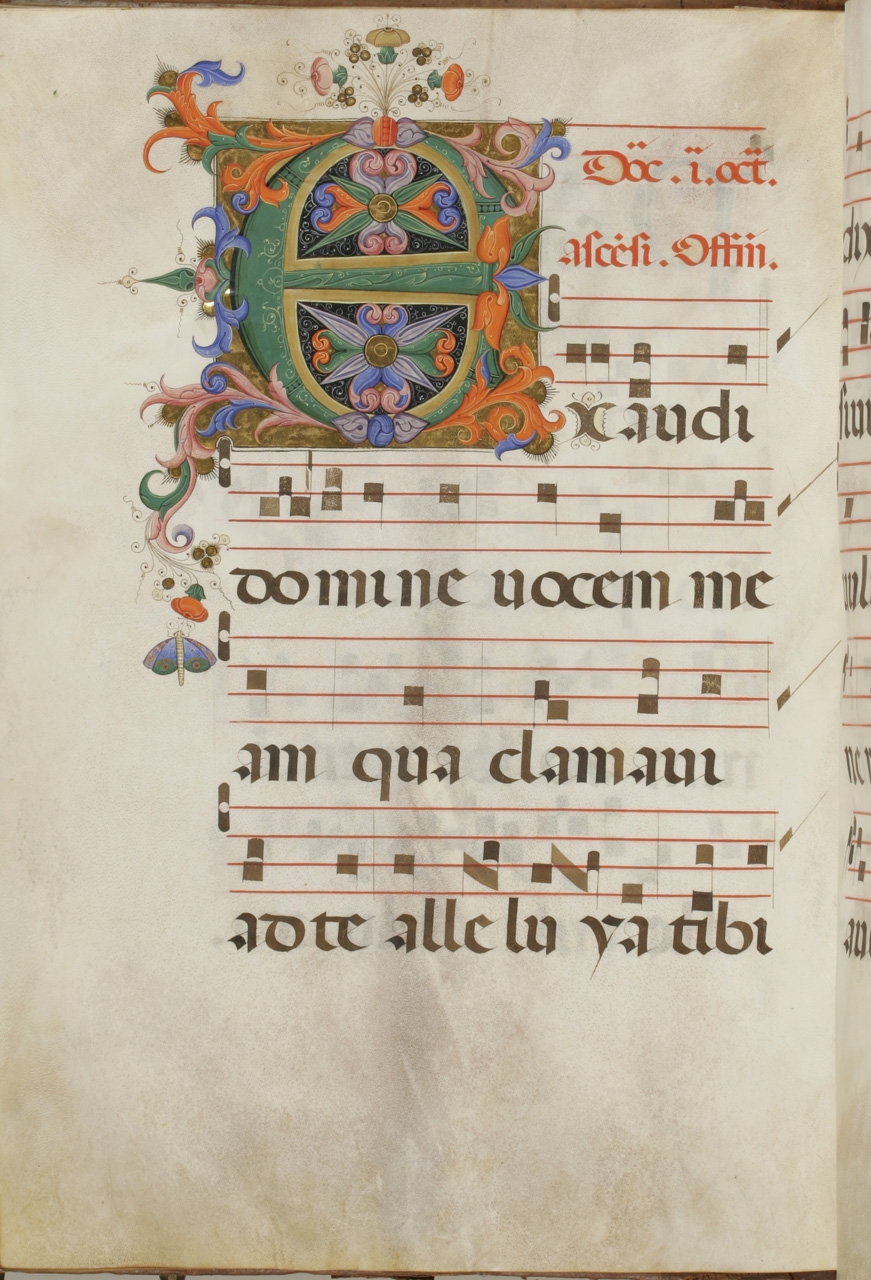 Dōc . i . oct̄.
ascēsi . Offin̄.
Exaudi
domine uocem me
am qua clamaui
ad te alleluya tibi